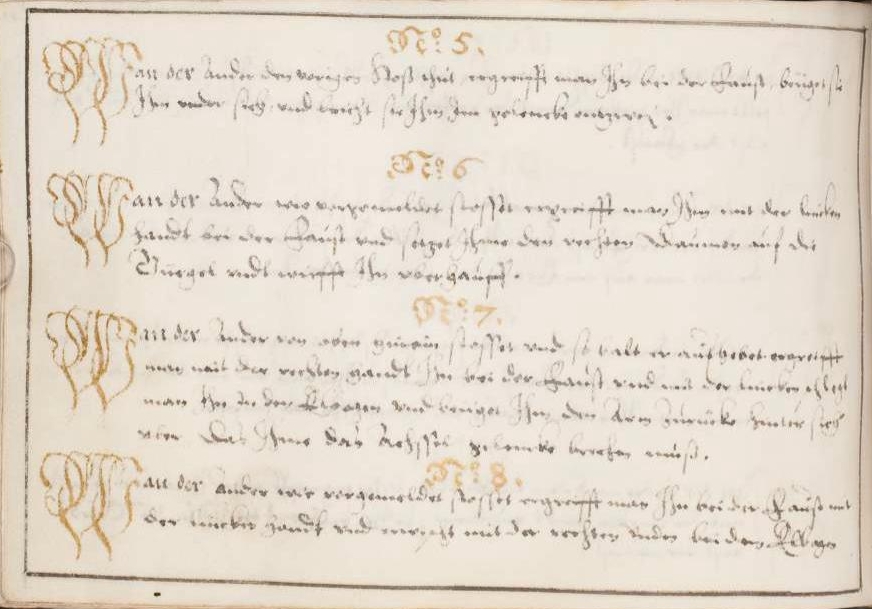 No: 5.
Wan der Ander den vorigen Stoß thut, ergreifft man Ihn bei der Faust, beüget sie
Ihm vnder sich, vnd bricht sie Ihm Im gelencke entzwey.
No: 6
Wan der Ander wie vorgemeldet stosset ergreifft man Ihn mit der lincken
handt bei der Faust vnd setzet Ihme den rechten Daumen auf die
vndt wirfft Ihn
No: 7.
Wan der Ander von oben herein stosset vnd so balt er aufhebet ergreifft
man mit der rechten handt Ihn bei der Faust vnd mit der lincken schlegt
man Ihn in den Elbogen vnd beuget Ihm den Arm zurücke hinter sich
vber das Ihme das Achssel gelencke brechen muß.
No: 8.
Wan der Ander wie vorgemeldet stosset ergreifft man Ihn bei der Faust mit
der lincken handt vnd erwischt mit der rechten vnden bei dem Elbogen